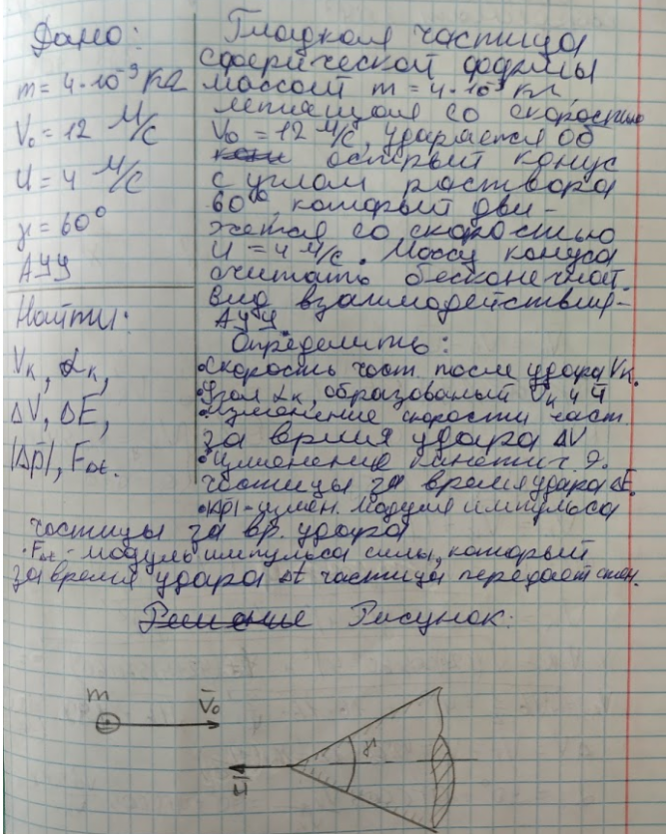 Дано:
m = 4·10⁻⁹ кг
V₀ = 12 м/с
U = 4 м/с
γ = 60°
АУУ
Найти:
Vк, αк,
ΔV, ΔE,
|Δp̄|, FΔt.
Гладкая частица
сферической формы
массой m = 4·10⁻⁹ кг
летящая со скоростью
V₀ = 12 м/с, ударяется об
острый конус
с углом раствора
60°, который дви-
жется со скоростью
U = 4 м/с. Массу конуса
считать бесконечной.
Вид взаимодействия-
АУУ.
Определить:
·Скорость част. после удара Vк.
·Угол αк, образованый V̄к и Ū
·Изменение скорости част.
за время удара ΔV
·Изменение кинетич. Э.
частицы за время удара ΔE.
·|Δp̄|-измен. модуля импульса
частицы за вр. удара
·FΔt - модуль импульса силы, который
за время удара Δt частица передает
Решение Рисунок:
m
V̄₀
γ
Ū